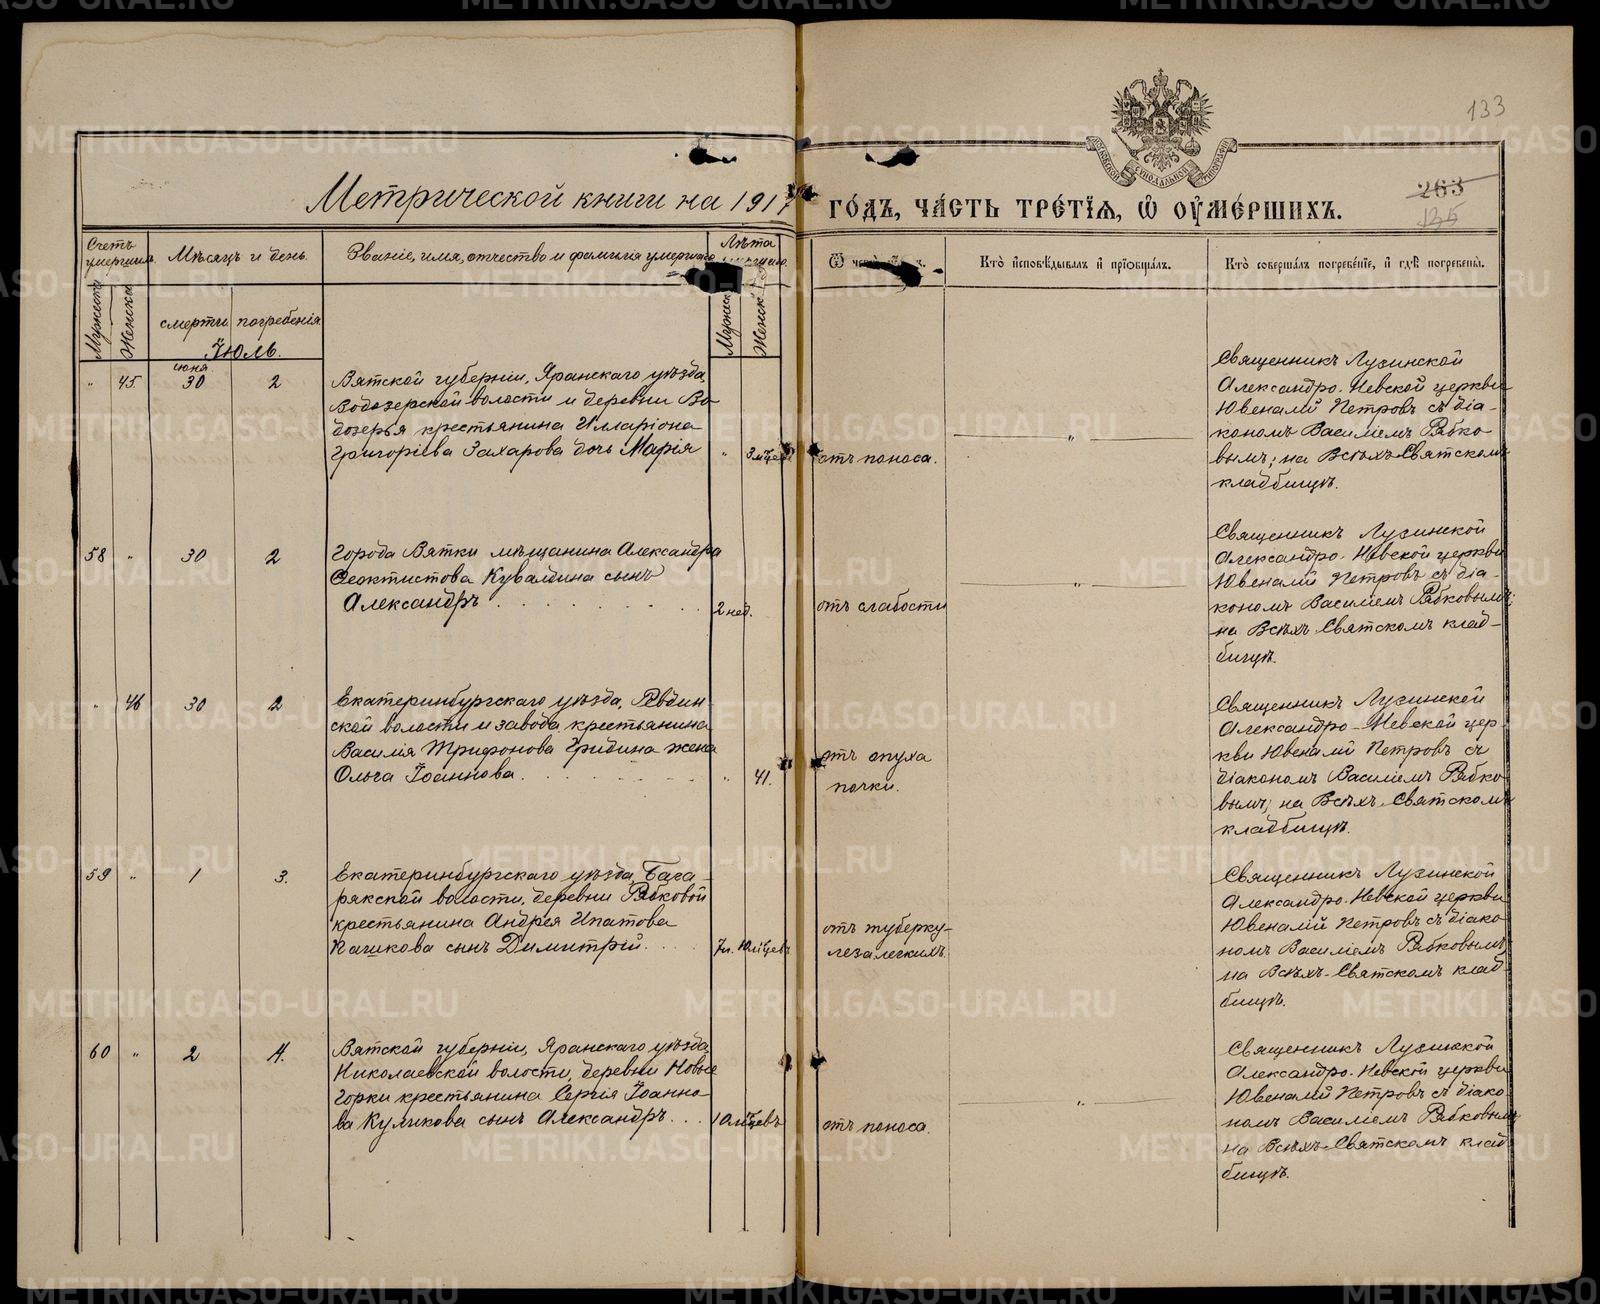 133
263
135
Метрической книги на 1917
го́дъ, ча́сть тре́тїѧ, ѡ҆ ᲂу҆ме́ршихъ.
Счетъ умершихъ.
Мѣсяцъ и день.
Званіе, имя, отчество и фамилія умершаго
Лѣта
Кто̀ и҆сповѣ́дывалъ и҆ прїѡбща́лъ.
Кто̀ соверша́лъ погребе́нїе, и҆ гдѣ̀ погребены̀.
Мужска
Женска
смерти
погребенія
Мужск
Женск
Іюль.
іюня
" 45 30 2
Вятской губерніи, Яранскаго уѣзда,
Водозерской волости и деревни Во
дозерья крестьянина Илларіона
Григоріева Захарова дочь Марія
" 3 мѣсец
отъ поноса.
"
Священникъ Лузинской
Александро-Невской церкви
Ювеналій Петровъ съ діа-
кономъ Василіемъ Рябко
вымъ; на Всѣхъ-Святскомъ
кладбищѣ.
58 " 30 2
Города Вятки мѣщанина Александра
Ѳеоктистова Кувалдина сынъ
Александръ . . . . . . . .
2 нед.
отъ слабости
"
Священникъ Лузинской
Александро-Невской церкви
Ювеналій Петровъ съ діа-
кономъ Василіемъ Рябковымъ;
на Всѣхъ-Святскомъ клад-
бищѣ.
" 46 30 2
Екатеринбургскаго уѣзда, Ревдин
ской волости и завода крестьянина
Василія Трифонова Гридина жена
Ольга Іоаннова. . . . . . . .
" 41.
отъ опуха
почки.
Священникъ Лузинской
Александро-Невской цер-
кви Ювеналій Петровъ съ
діакономъ Василіемъ Рябко
вымъ; на Всѣхъ-Святскомъ
кладбищѣ.
59 " 1 3.
Екатеринбургскаго уѣзда, Бага-
ряжской волости, деревни Рябковой
крестьянина Андрея Ипатова
Пашкова сынъ Димитрій. . . .
7л. 10 мѣцевъ
отъ туберку-
леза легкихъ.
Священникъ Лузинской
Александро-Невской церкви
Ювеналій Петровъ съ діако-
номъ Василіемъ Рябковымъ
на Всѣхъ-Святскомъ клад-
бищѣ.
60 " 2 4.
Вятской губерніи, Яранскаго уѣзда,
Николаевской волости, деревни Новые
Горки крестьянина Сергія Іоанно-
ва Куликова сынъ Александръ. . .
10 мѣцевъ
отъ поноса.
"
Священникъ Лузинской
Александро-Невской церкви
Ювеналій Петровъ съ діако-
номъ Василіемъ Рябковымъ
на Всѣхъ-Святскомъ клад-
бищѣ.
METRIKI.GASO-URAL.RU